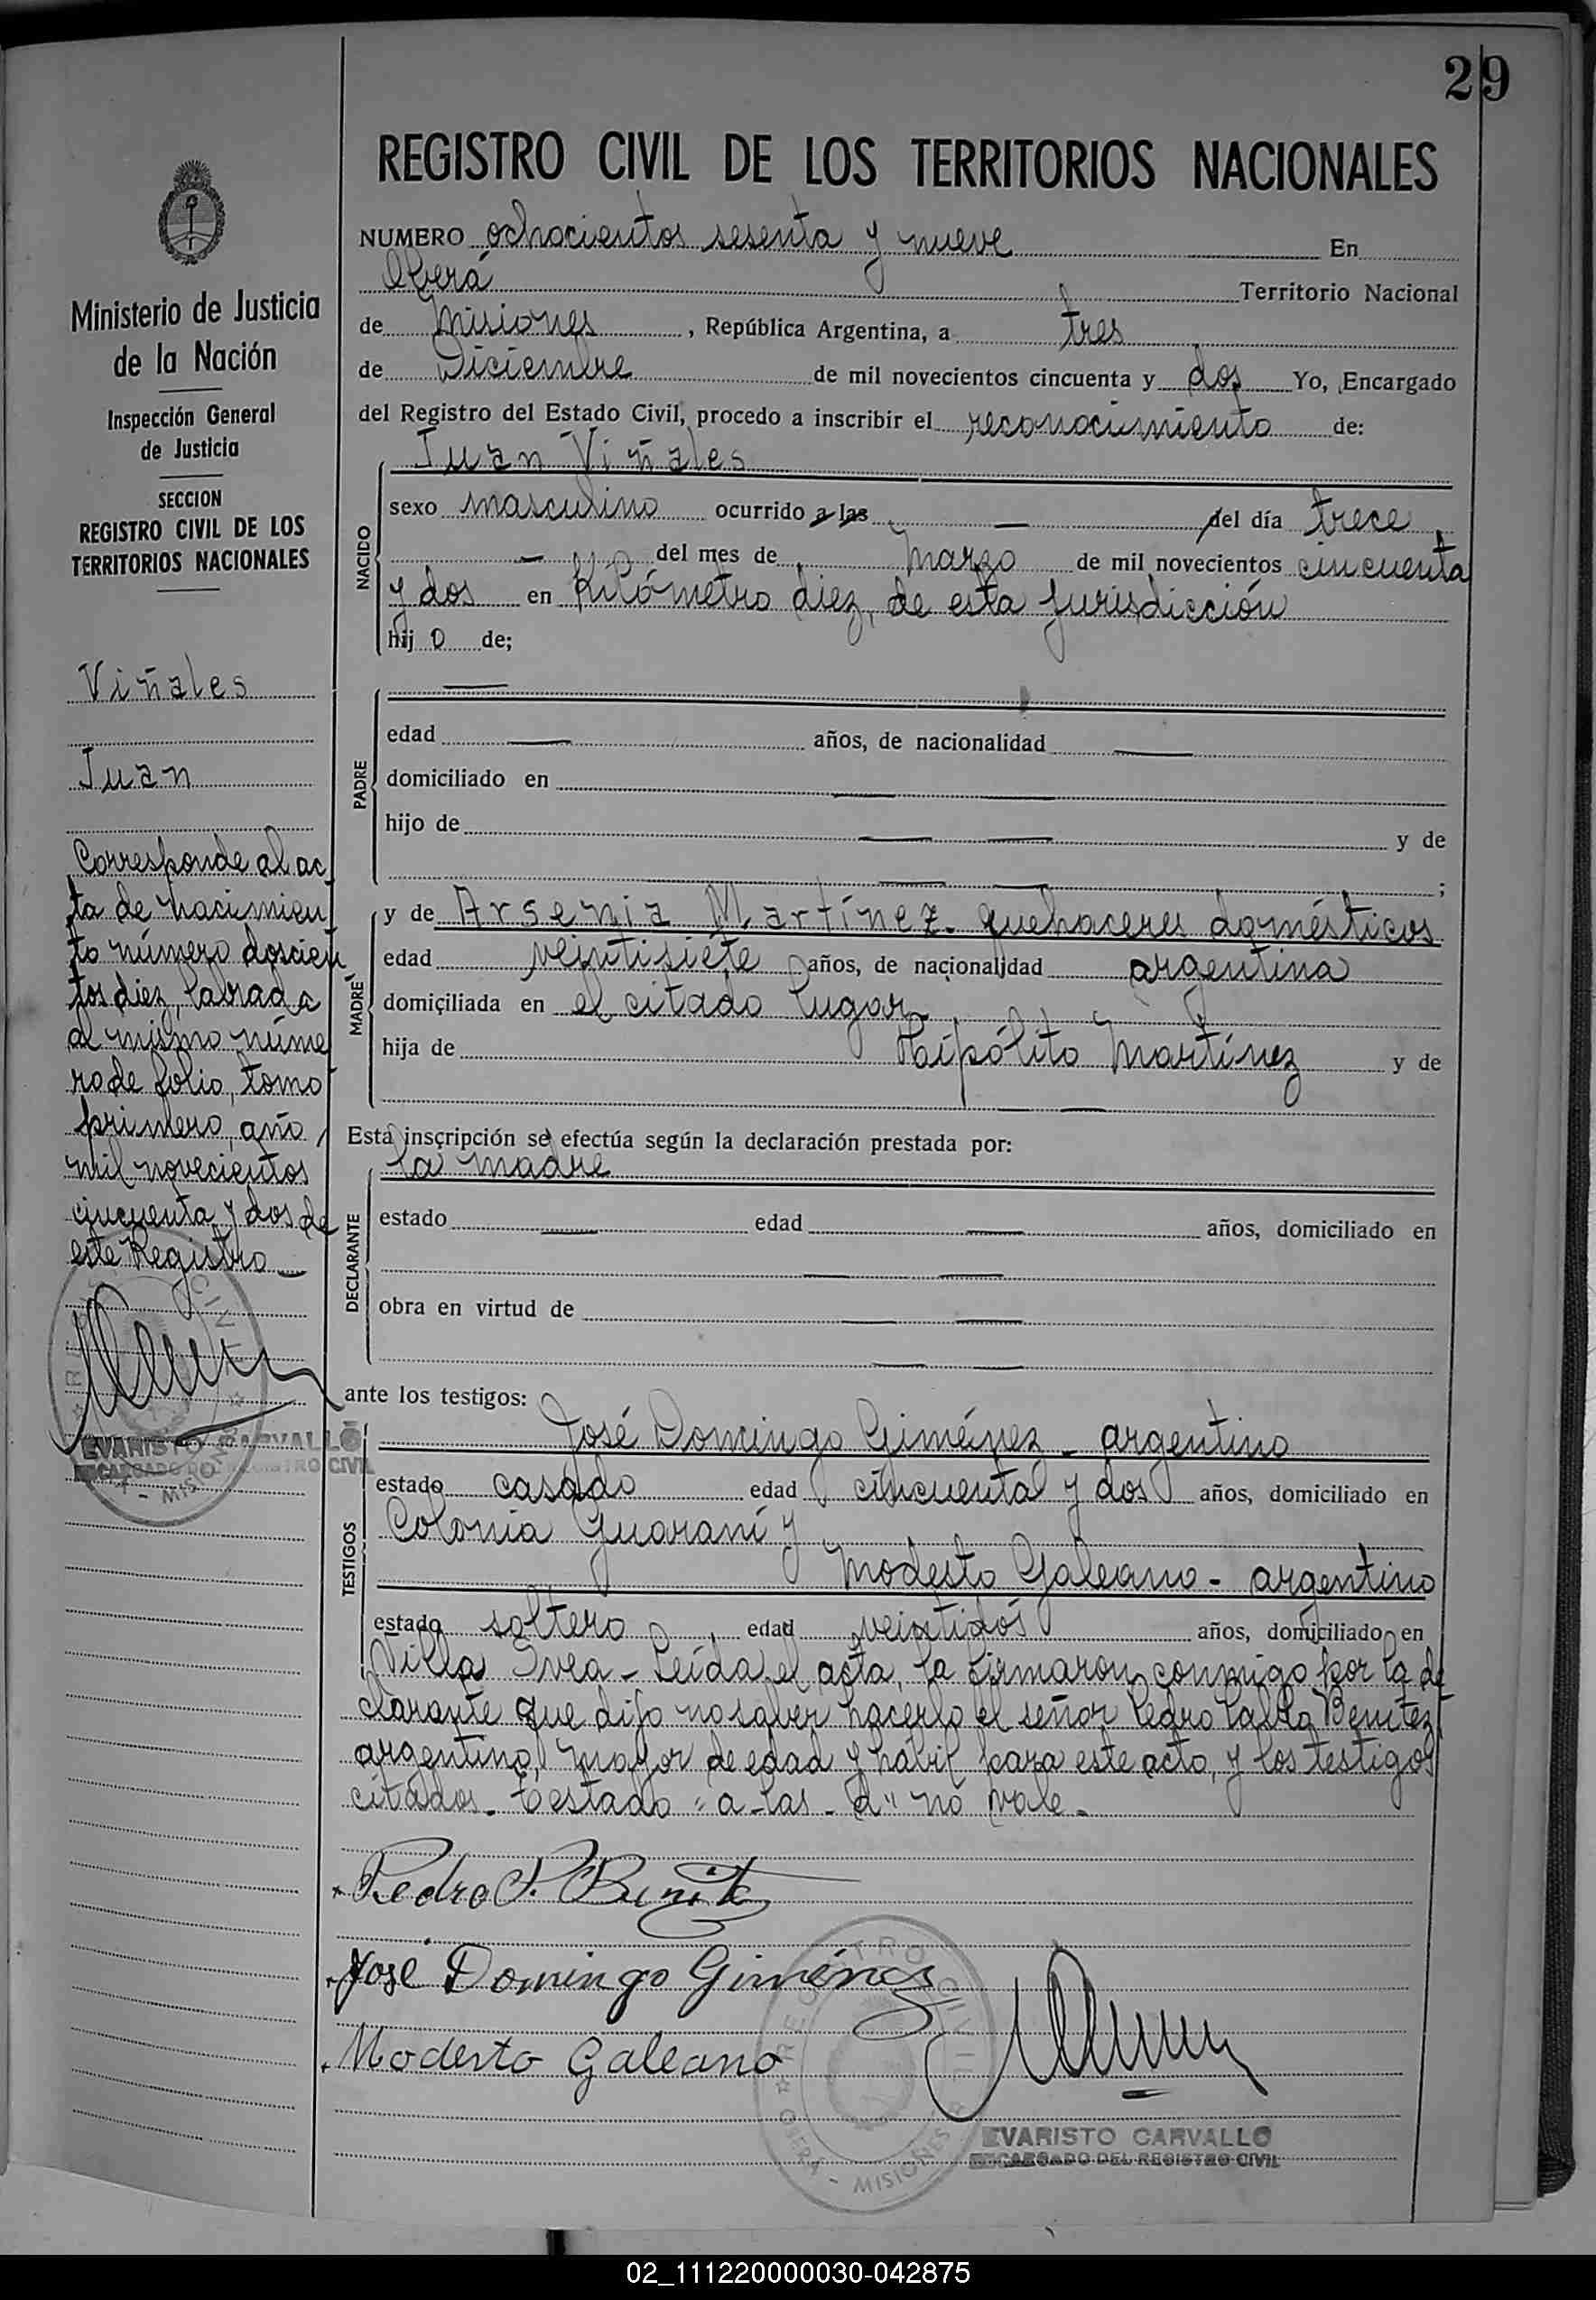 29
REGISTRO CIVIL DE LOS TERRITORIOS NACIONALES
NUMERO ochocientos sesenta y nueve En
Oberá Territorio Nacional
de Misiones , República Argentina, a tres
de Diciembre de mil novecientos cincuenta y dos Yo, Encargado
del Registro del Estado Civil, procedo a inscribir el reconocimiento de:
NACIDO
Juan Viñales
sexo masculino ocurrido a las — del día trece
— del mes de Marzo de mil novecientos cincuenta
y dos en Kilómetro diez, de esta jurisdicción
hij o de;
PADRE
—
edad — años, de nacionalidad —
domiciliado en — —
hijo de — — y de
— — ;
MADRE
y de Arsenia Martínez - quehaceres domésticos
edad veintisiete años, de nacionalidad argentina
domiciliada en el citado lugar
hija de Hipólito Martínez y de
— —
Esta inscripción se efectúa según la declaración prestada por:
DECLARANTE
la madre
estado — edad — años, domiciliado en
— —
obra en virtud de — —
— —
ante los testigos:
TESTIGOS
José Domingo Giménez - argentino
estado casado edad cincuenta y dos años, domiciliado en
Colonia Guaraní y
Modesto Galeano - argentino
estado soltero, edad veintidós años, domiciliado en
Villa Svea - Leída el acta, la firmaron conmigo por la de
clarante que dijo no saber hacerlo el señor Pedro Pablo Benítez,
argentino, mayor de edad y hábil para este acto, y los testigos
citados. Testado "a-las-d" no vale.
Pedro P. Benitez
José Domingo Giménez
Modesto Galeano
REGISTRO CIVIL
OBERA - MISIONES
EVARISTO CARVALLO
ENCARGADO DEL REGISTRO CIVIL
Ministerio de Justicia
de la Nación
Inspección General
de Justicia
SECCION
REGISTRO CIVIL DE LOS
TERRITORIOS NACIONALES
Viñales
Juan
Corresponde al ac
ta de nacimien
to número doscien
tos diez, labrada
al mismo núme
ro de folio, tomo
primero, año
mil novecientos
cincuenta y dos de
este Registro —
EVARISTO CARVALLO
ENCARGADO DEL REGISTRO CIVIL
02_111220000030-042875